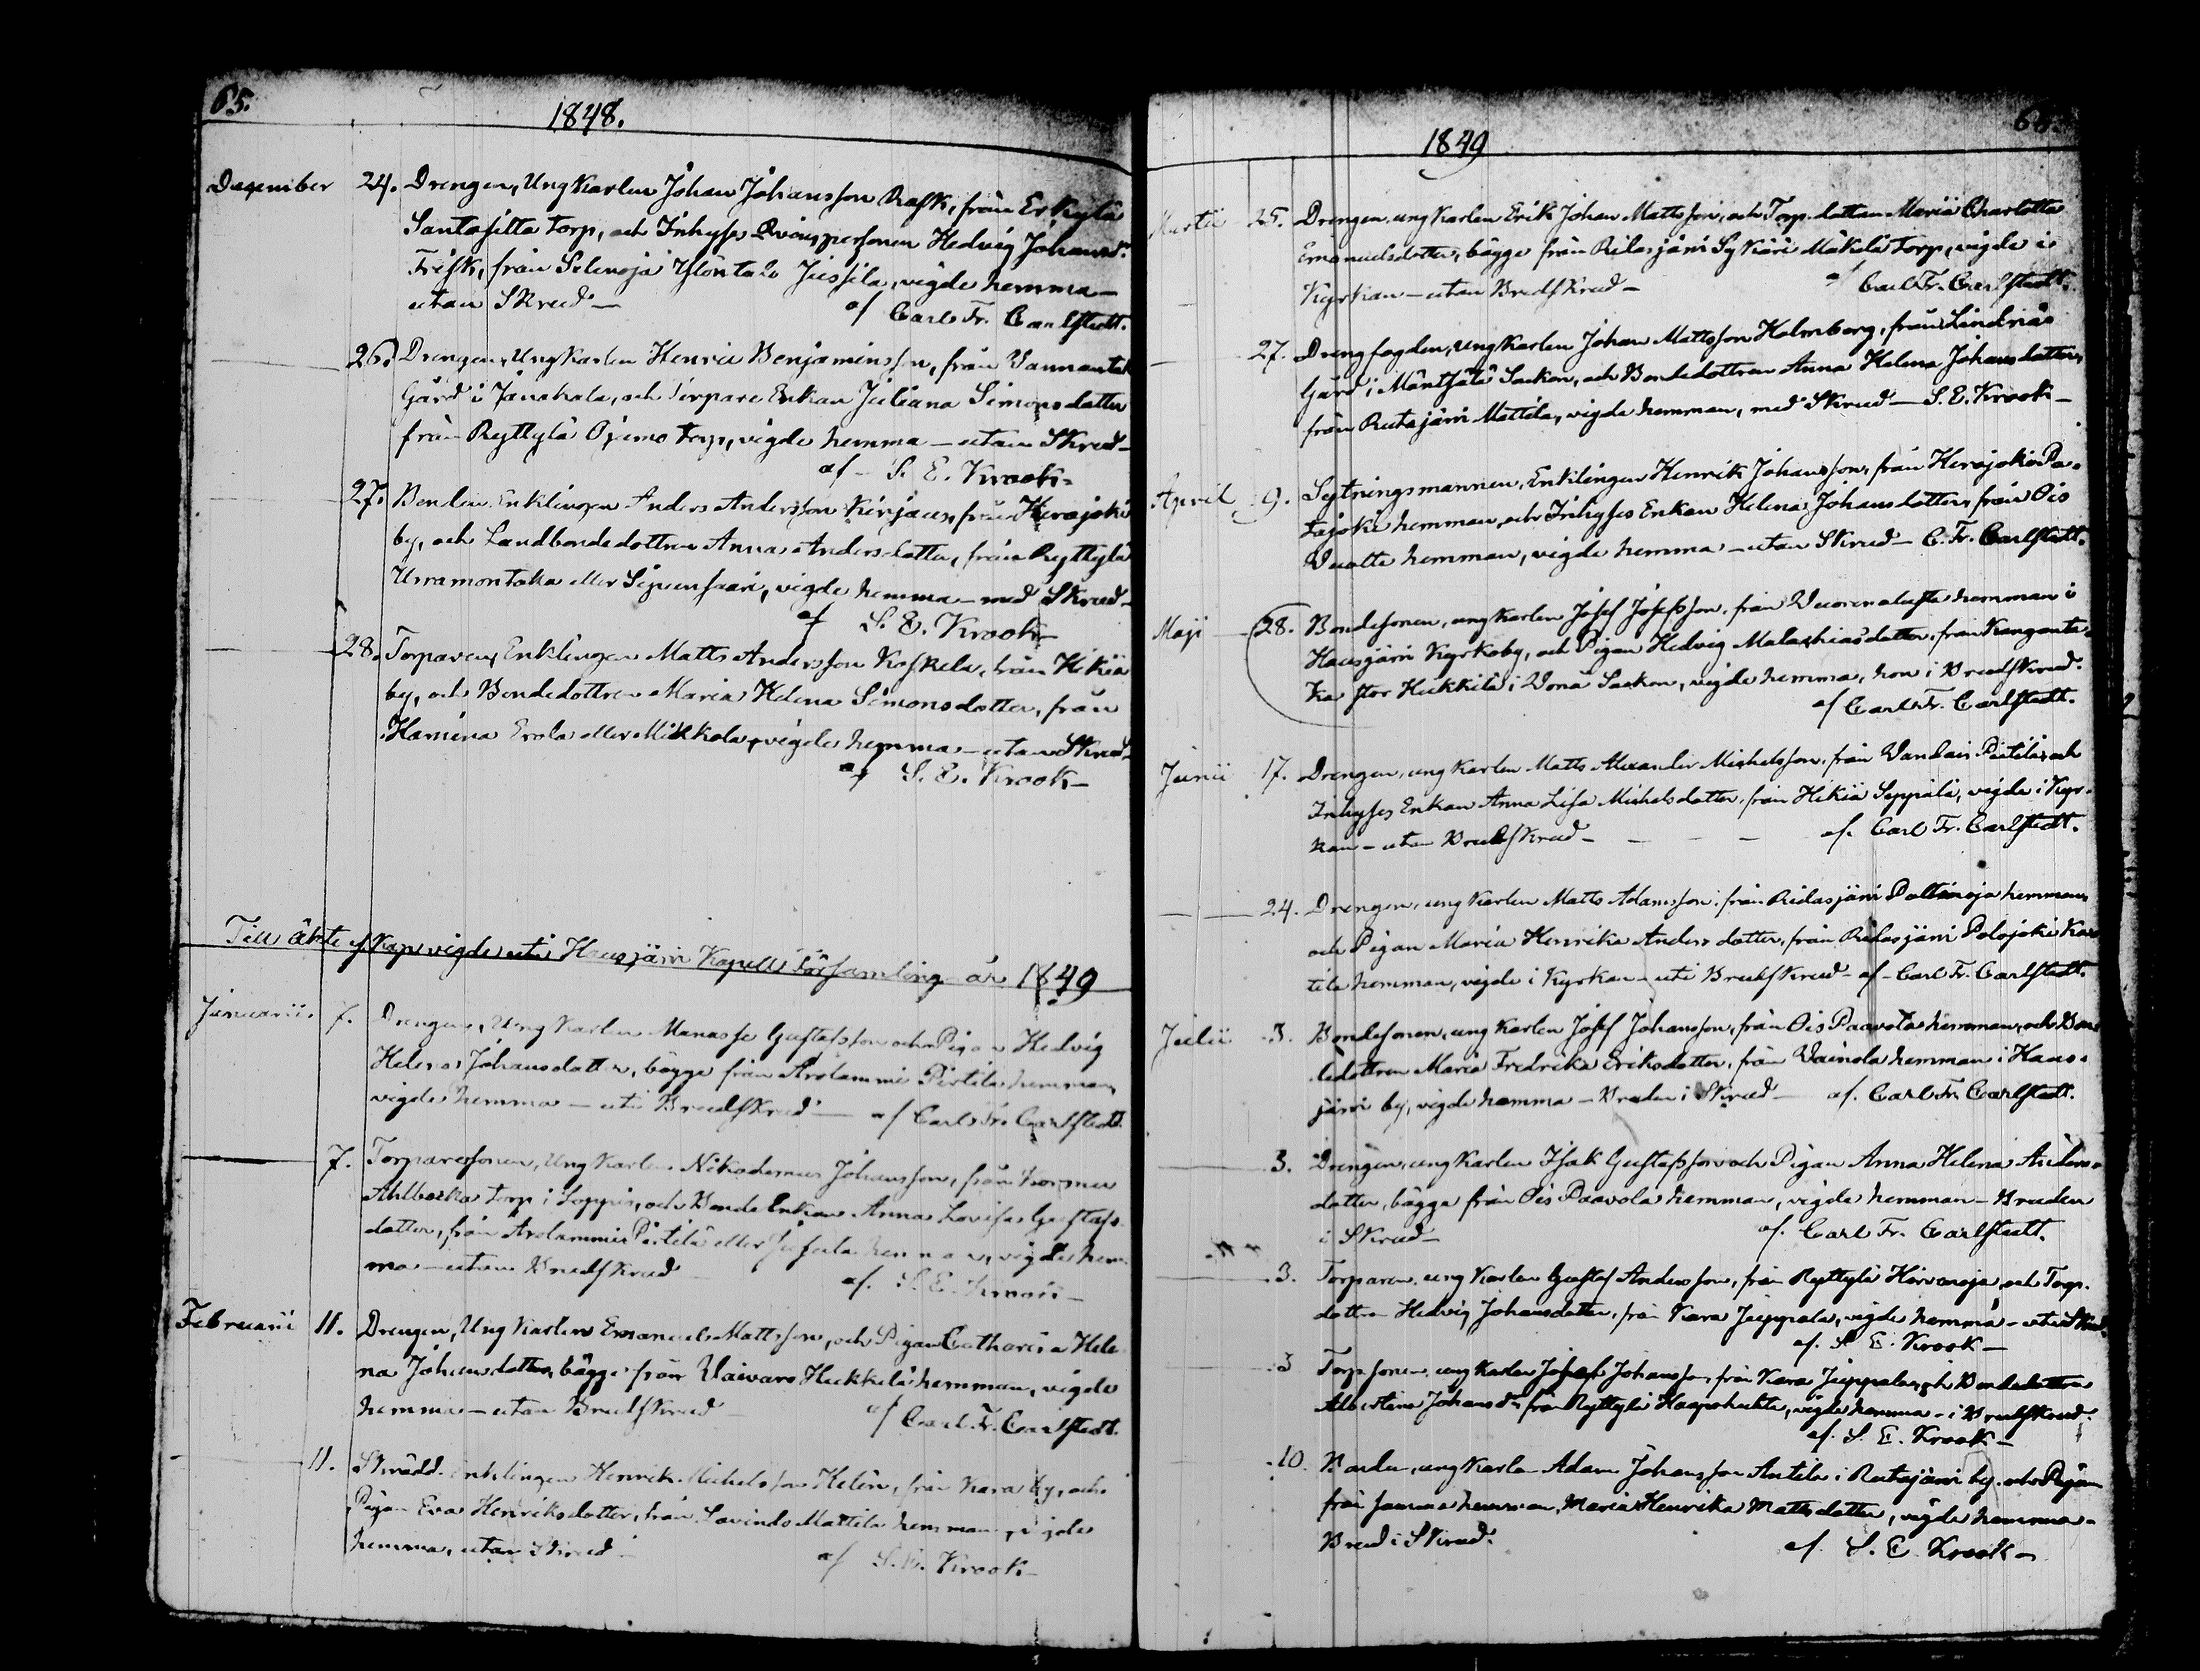 65.
1848.
December 24. Drengen, Ungkarlen Johan Johansson Rask, från Erkylä
Santasilta torp, och Inhyses Qvinspersonen Hedvig Johansdr
Frisk, från Selinoja Ylöntalo Jussila, vigde hemma —
utan Skrud — af Carl Fr. Carlstedt.
26. Drengen, Ungkarlen Henric Benjaminsson, från Vanantaka
Gård i Janakala, och Torpare Enkan Juliana Simonsdotter
från Ryttylä Ojimo torp, vigde hemma — utan Skrud —
af S. E. Krook —
27. Bonden Enklingen Anders Andersson Kirjaus, från Herajoki
by, och Landbondedottren Anna Andersdotter, från Ryttylä
eller vigde hemma — med Skrud —
af S. E. Krook —
28. Torparen, Enklingen Matts Andersson Koskela, från Hikiä
by, och Bondedottren Maria Helena Simonsdotter, från
Hamina Erola eller Mickola, vigde hemma — utan Skrud —
af S. E. Krook —
Till äktenskap vigde uti Hausjärvi Kapell Församling år 1849
Januarii. 7. Drengen, Ung Karlen Manasse Gustafsson och Pigan Hedvig
Helena Johansdotter, bägge från Arolammi Pirtilä hemman,
vigde hemma — uti Brudskrud — af Carl Fr. Carlstedt.
7. Torparesonen, Ung Karlen Nikodemus Johansson, från Kormu
Ahlbacka torp i Loppis, och Bonde Enkan Anna Lovisa Gustafs
dotter, från Arolammi Pirtilä eller hemman, vigde hem
ma — utan Brudskrud af. S. E. Krook —
Februarii 11. Drengen, Ung Karlen Emanuel Mattsson, och Pigan Catharina Hele
na Johansdotter, bägge från Vaivaro Heikkilä hemman, vigde
hemma — utan Brudskrud — af Carl Fr. Carlstedt.
11. Skrädd. Enklingen Henrik Michelsson Helin, från Kara by, och
Pigan Eva Henriksdotter, från Savindo Mattila hemman, vigde
hemma, utan Skrud — af S. E. Krook —
66.
1849
Martii 25. Drengen, ung Karlen Erik Johan Mattsson, och Torp. dottren Maria Charlotta
Emanuelsdotter, bägge från Ridasjärvi Sykäri Mäkelä torp, vigde i
Kyrkan — utan Brudskrud — af Carl Fr. Carlstedt.
27. Drengfogden, ung karlen Johan Mattsson Holmberg, från Lindnäs
Gård i Mäntsälä Socken, och Bondedottren Anna Helena Johansdotter,
från Rutajärvi Mattila, vigde hemman, med Skrud — S. E. Krook —
April 9. Sytningsmannen, Enklingen Henrik Johansson, från Herajoki Pa-
tajoki hemman, och Inhyses Enkan Helena Johansdotter, från Ois
Vuolte hemman, vigde hemma — utan Skrud — C. Fr. Carlstedt.
Maji 28. Bondesonen, ung karlen Josef Josefsson, från Vuorenalusta hemman i
Hausjärvi Kyrkoby, och Pigan Hedvig Malachiasdotter, från Kanganta-
ka stor Heikkilä i Vånå Socken, vigde hemma, hon i Brudskrud.
af Carl Fr. Carlstedt.
Junii 17. Drengen, ung karlen Matts Alexander Michelsson, från Vandais Pietilä och
Inhyses Enkan Anna Lisa Michelsdotter, från Hikiä Seppälä, vigde i Kyr-
kan — utan Brudskrud — — — af. Carl Fr. Carlstedt.
24. Drengen, ung karlen Matts Adamsson, från Ridasjärvi Paltinoja hemman,
och Pigan Maria Henrika Andersdotter, från Ridasjärvi Palojoki Kor
tila hemman, vigde i Kyrkan — uti Brudskrud — af Carl Fr. Carlstedt.
Julii 3. Bondesonen, ung karlen Josef Johansson, från Ois Paavola hemman, och Bon
dedottren Maria Fredrika Eriksdotter, från Vainola hemman i Haus-
järvi by, vigde hemma — Bruden i Skrud — af. Carl Fr. Carlstedt.
3. Drengen, ung karlen Isak Gustafsson och Pigan Anna Helena Anders-
dotter, bägge från Ois Paavola hemman, vigde hemman — Bruden
i Skrud — af. Carl Fr. Carlstedt.
3. Torparen, ung karlen Gustaf Andersson, från Ryttylä Hirvanoja, och Torp.
dottren Hedvig Johansdotter, från Kara Jyppälä, vigde hemma — uti Skrud.
af. S. E. Krook —
3 Torp sonen, ung karlen Josef Johansson från Kara Jyppälä, och Bondedottren
Albertina Johansdr från Ryttylä Haapahuhta, vigde hemma — i Brudskrud.
af. S. E. Krook —
10. Bonden, ung karlen Adam Johansson Antila i Rutajärvi by, och Pigan
från samma hemman, Maria Henrika Mattsdotter, vigde hemma —
Brud i Skrud. af. S. E. Krook —